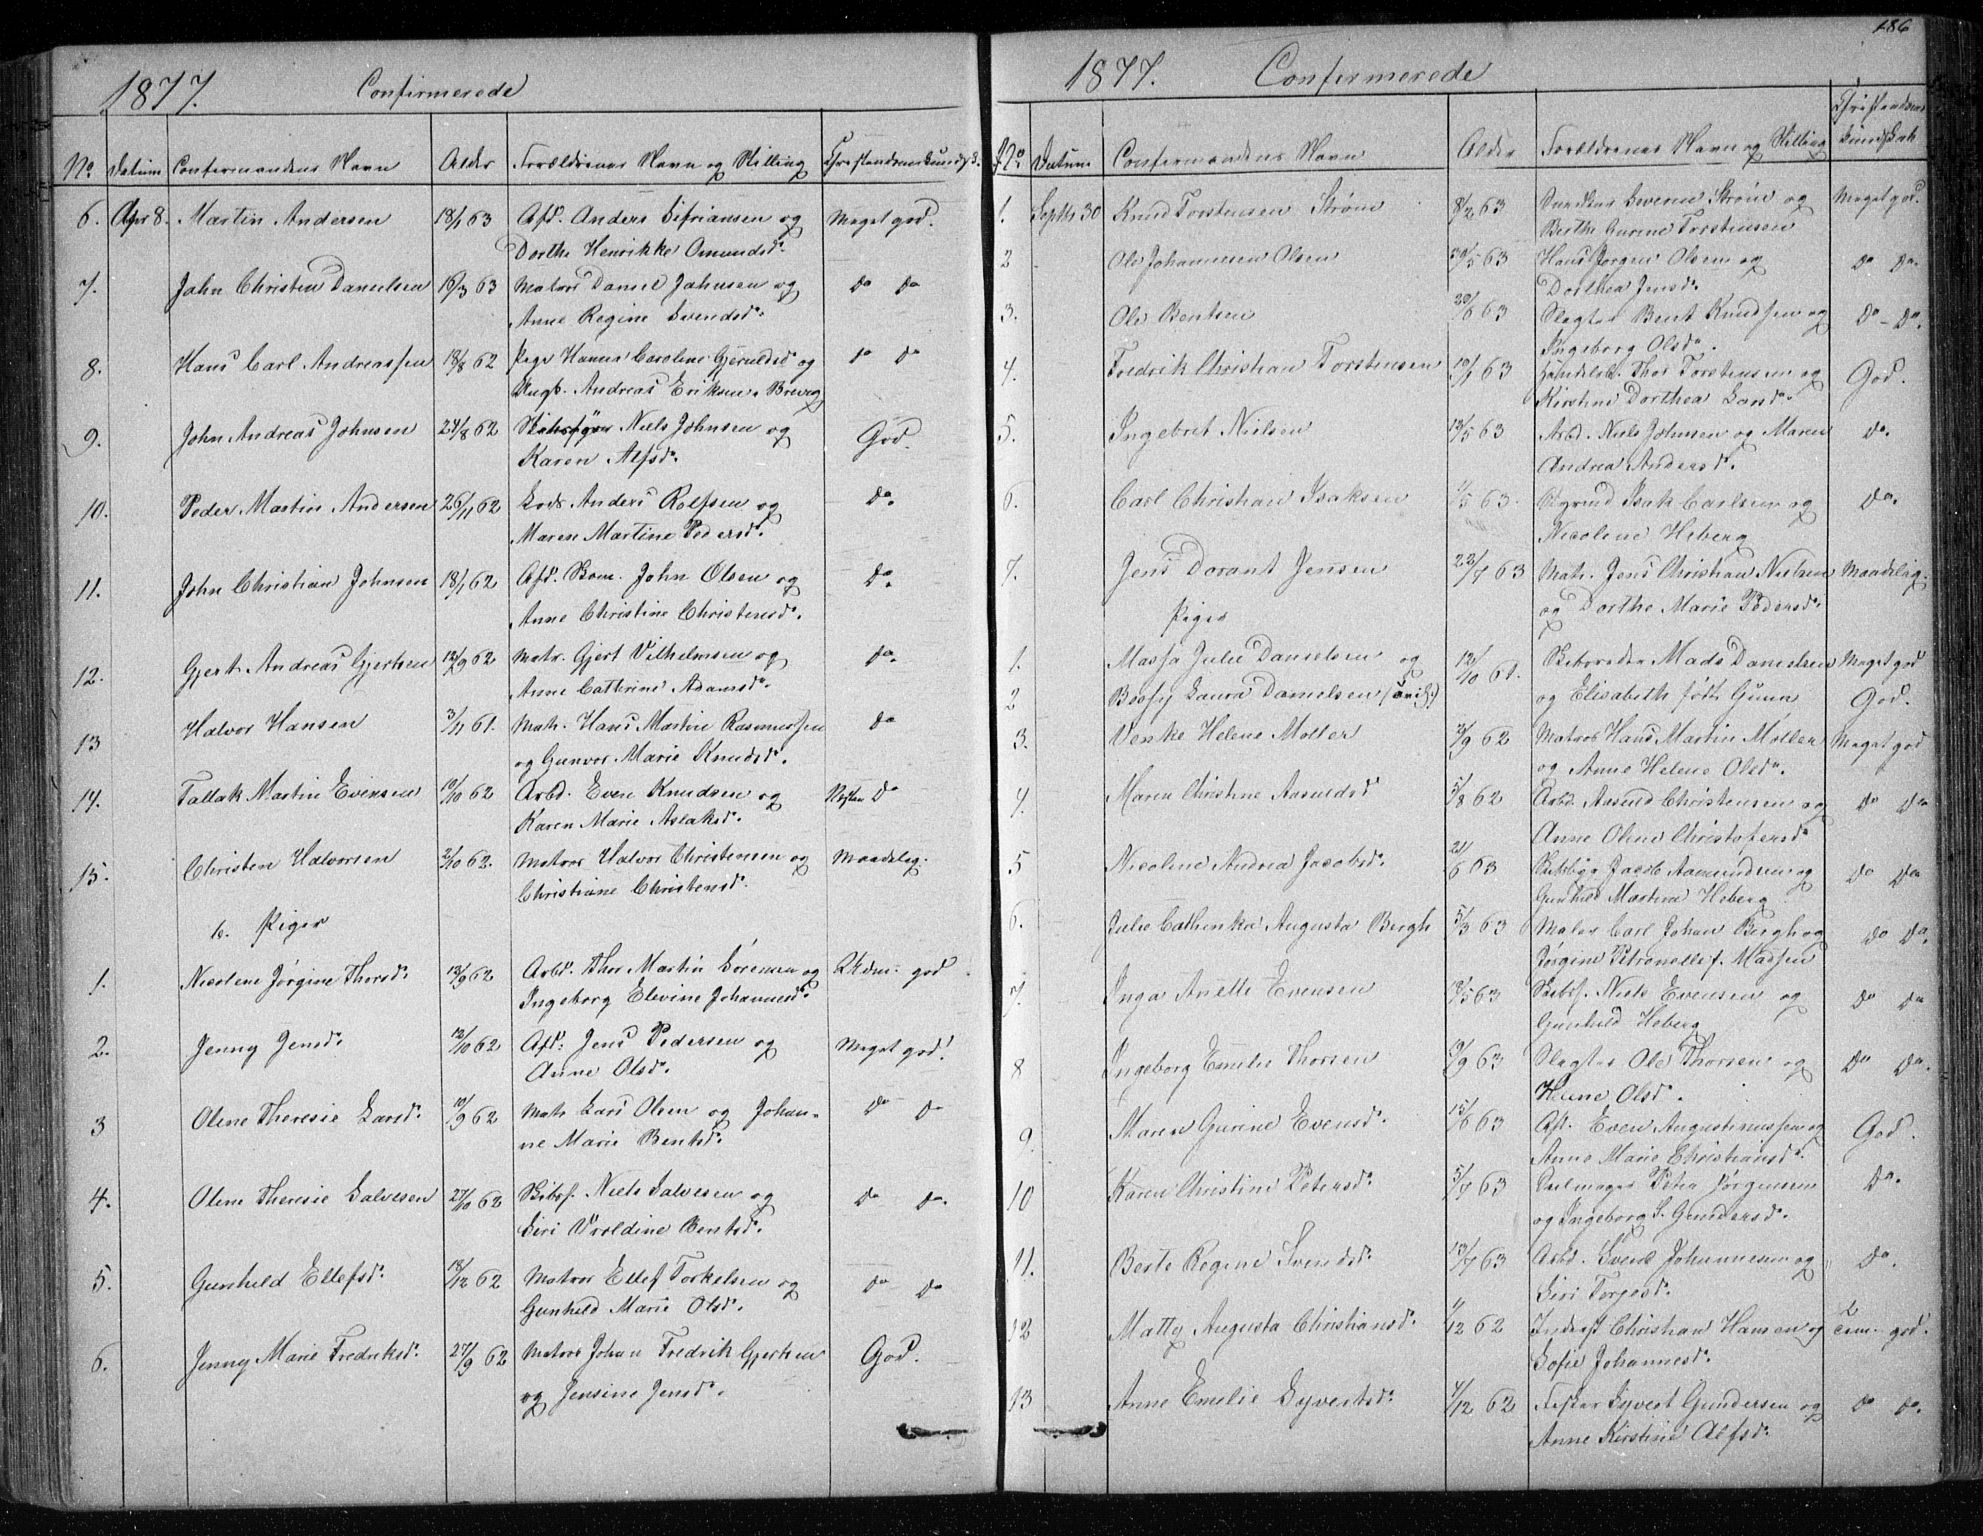 1877. Confirmerede
No. Datum Confirmandens Navn Alder Forældrenes Navn og Stilling Christendomskundsk.
6. Apr 8. Martin Andersen 18/1 63 Afd. Anders Sifriansen og Meget god.
Dorthe Henrikke Omundsd.
7. John Christen Danielsen 16/3 63 Matros Daniel Johnsen og do do
Anne Regine Svendsd.
8. Hans Carl Andreassen 18/8 62 Pige Hanna Caroline Gjeruldsd og do do
Ungk. Andreas Eriksen, Brevig
9. John Andreas Johnsen 24/8 62 Niels Johnsen og God.
Karen Alfsd.
10. Peder Martin Andersen 26/11 62 Lods Anders Rolfsen og do.
Maren Martine Pedersd.
11. John Christian Johnsen 18/1 62 Afd. Bom. John Olsen og do.
Anne Christine Christensd.
12. Gjert Andreas Gjertsen 12/9 62 Matr. Gjert Vilhelmsen og do.
Anne Cathrine Adamsd.
13 Halvor Hansen 3/11 61. Matr. Hans Martin Rasmussen do
og Gunvor Marie Knudsd.
14. Tallak Martin Evensen 10/10 62 Arbd. Even Knudsen og Næsten do
Karen Marie Aslaksd.
15. Christen Halvorsen 2/10 62. Matros Halvor Christensen og Maadelig.
Christiane Christensd.
b. Piger
1. Nicolene Jørgine Thorsd. 13/9 62 Arbd. Thor Martin Sørensen og Udm. god
Ingeborg Elevine Johannesd.
2. Jenny Jensd. 12/10 62 Afd: Jens Pedersen og Meget god!
Anne Olsd.
3 Olene Theresie Larsd. 10/9 62 Matr Lars Olsen og Johan- do do
ne Marie Bentsd.
4. Olene Theresie Salvesen 27/10 62 Skibsf. Niels Salvesen og do do.
Siri Uroldine Bentsd.
5. Gunhild Ellefsd. 18/12 62 Matros Ellef Torkelsen og do do
Gunhild Marie Olsd.
6. Jenny Marie Fredriksd. 27/9 62 Matros Johan Fredrik Gjerken God.
og Jensine Jensd.
186
1877. Confirmerede
No. Datum Confirmandens Navn Alder Forældrenes Navn og Stilling Christendoms
kundskab
1. Septbr 30 Knud Torstensen Strøm 8/2 63 Snedker Strøm og Meget god.
Berthe Gurine Torstensen
2 Ole Johannesen Olsen 30/5 63 Hans Jørgen Olsen og do do.
Dorthea Jensd.
3. Ole Bentsen 20/6 63 Slagter Bent Knudsen og do - do.
Ingeborg Olsd.
4. Fredrik Christian Torstensen 10/7 63 Handelsb. Thor Torstensen og God.
Kirstine Dorthea Larsd.
5. Ingebret Nielsen 13/5 63 Arbd. Niels Johnsen og Maren do.
Andrea Andersd.
6. Carl Christian Isaksen 1/5 63. Isak Carlsen og do.
Nicolene Heberg
7. Jens Dorant Jensen 22/7 63 Matr. Jens Christian Nielsen Maadelig.
og Dorthe Marie Pedersd.
Piger
1. Massa Julie Danielsen og 12/10 61. Skibsreder Mads Danielsen Meget god
2 Bessy Laura Danielsen og Elisabeth født Gunn God.
3. Venke Helene Møller 2/9 62 Matros Hans Martin Møller Meget god
og Anne Helene Olsd.
4. Maren Christine Aanuldsd 5/8 62 Arbd. Aanuld Christensen og do do
Anne Oline Christofersd
5 Nicoline Andrea Jacobsd. 21/6 63 Skibsby. Jacob Aamundsen og do do
Gunhild Martine Heberg
6. Julie Cathinka Augusta Bergh 5/3 63 Maler Carl Johan Bergh og do do.
Jørgine Petronelle f. Madsen
7. Inga Anette Evensen 18/5 63 Skibsf. Niels Evensen og do do
Gunhild Heberg
8 Ingeborg Emilie Thorsen 19/9 63 Slagter Ole Thorsen og do do.
Helene Olsd.
9. Maren Gurine Evensd. 15/6 63 Afd. Even Augustinussen og God.
Anne Marie Christiansd.
10 Karen Christine Petersd. 5/7 63 Seilmager Peter Jørgensen do.
og Ingeborg S. Gundersd.
11. Berte Regine Svendsd. 13/7 63 Arbd. Svend Johannesen og do.
Siri Torjesd.
12 Matty Augusta Christiansd. 1/12 62 Inderst Christian Hansen og Tem. god.
Sofie Johannesd.
13 Anne Emelie Syvertsd. 4/12 62 Fisker Syvert Gundersen og do do.
Anne Kirstine Alfsd.